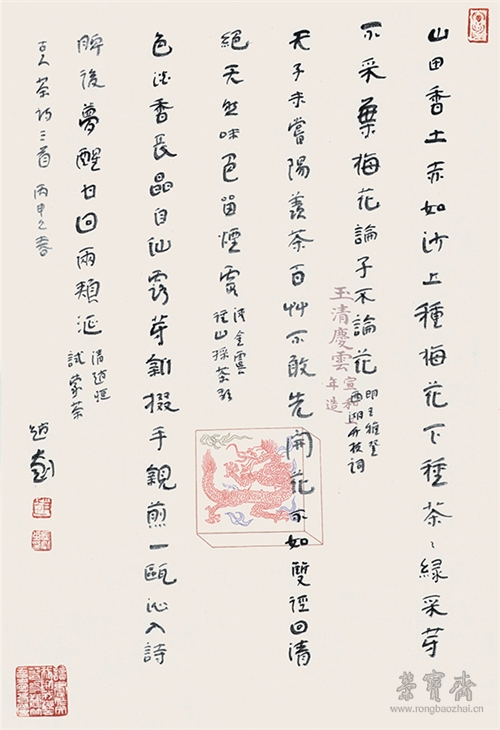 山田香土赤如沙上種梅花下種茶〻緑采芽
不采葉梅花論子不論花
明王稚登
西湖竹枝詞
天子未嘗陽羨茶百艸不敢先開花不如雙徑回清
絕天然味色留煙霞
清金虞
徑山採茶歌
色淡香長品自仙露芽新掇手親煎一甌沁入詩
脾後夢醒甘回兩頰涎
清趙恒
試家茶
古人茶詩三首 丙申之春
趙
玉清慶雲
宣和
年造
榮寶齋
www.rongbaozhai.cn